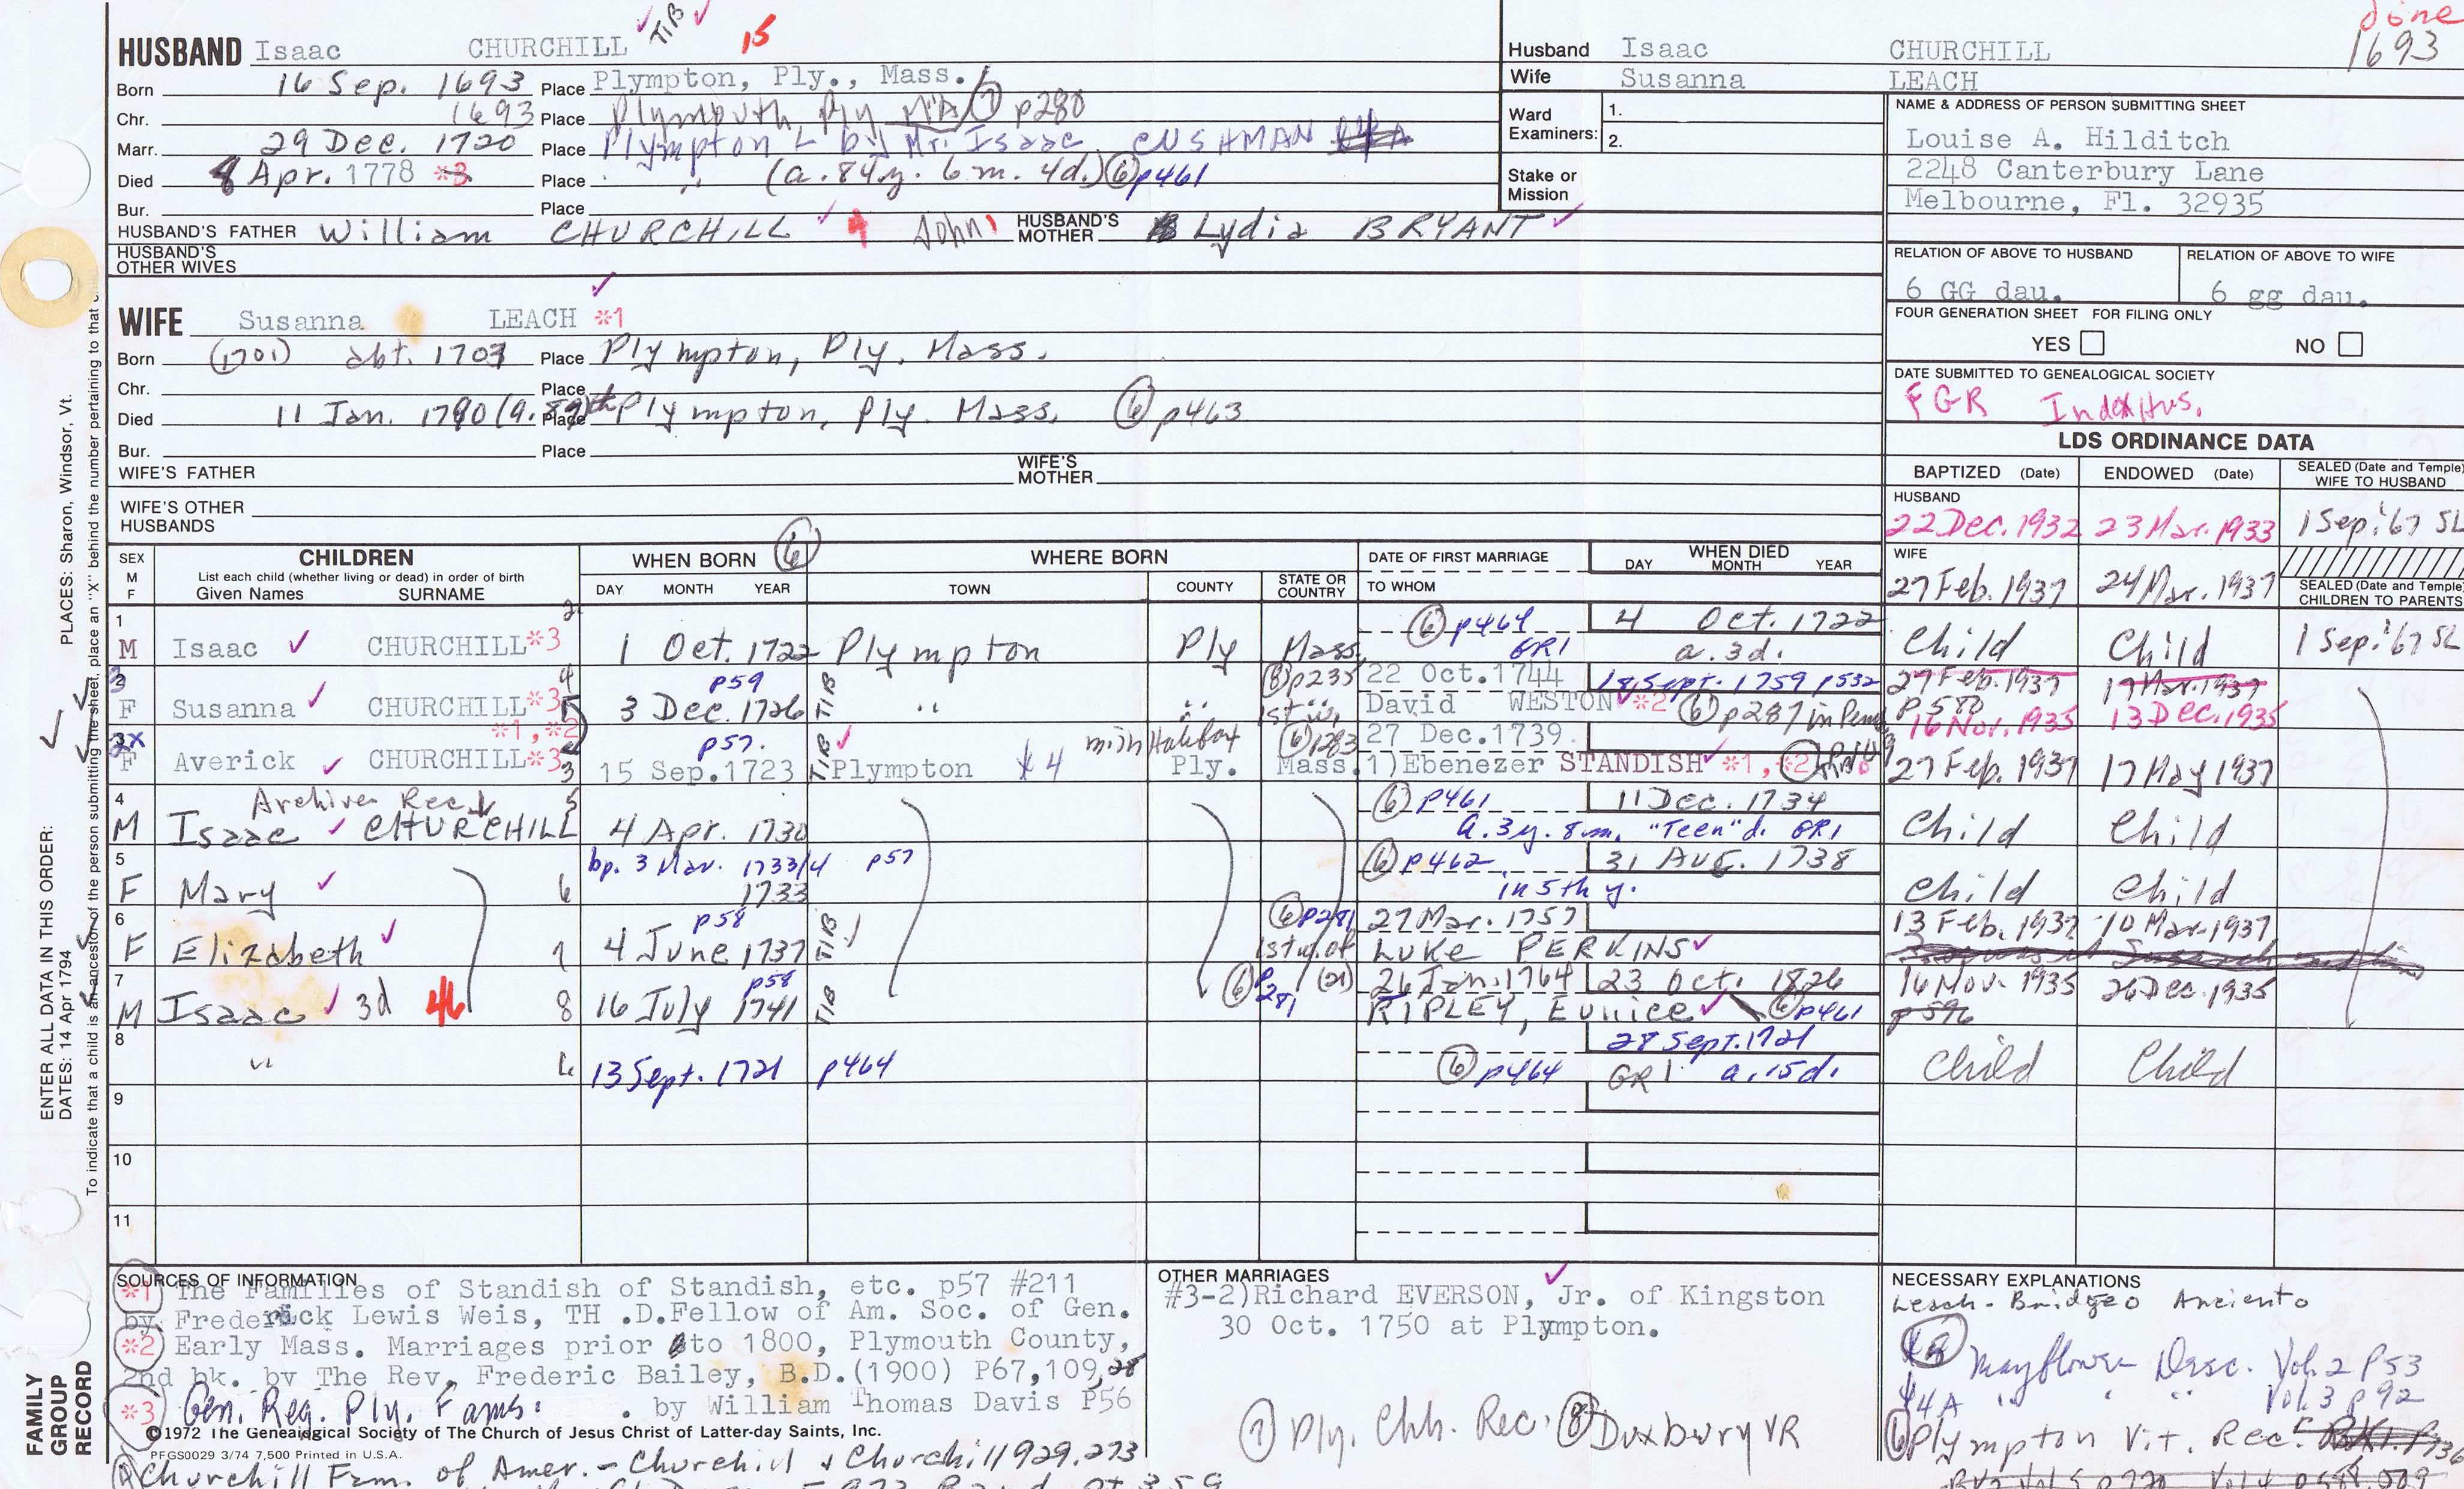 done
1693
TIB 15
HUSBAND Isaac CHURCHILL
Born 16 Sep. 1693 Place Plympton, Ply., Mass.
Chr. 1693 Place Plymouth Ply MA 7 p280
Marr. 29 Dec. 1720 Place Plympton by Mr. Isaac CUSHMAN
Died Apr. 1778 *3 Place " (a. 84y. 6m. 4d.) 6 p461
Bur. Place
HUSBAND'S FATHER William CHURCHILL 4 John HUSBAND'S MOTHER Lydia BRYANT
HUSBAND'S OTHER WIVES
WIFE Susanna LEACH *1
Born (1701) abt. 1703 Place Plympton, Ply. Mass.
Chr. Place
Died 11 Jan. 1790 (a. 89)th Place Plympton, Ply. Mass. 6 p463
Bur. Place
WIFE'S FATHER WIFE'S MOTHER
WIFE'S OTHER HUSBANDS
Husband Isaac CHURCHILL
Wife Susanna LEACH
Ward Examiners: 1.
2.
Stake or Mission
NAME & ADDRESS OF PERSON SUBMITTING SHEET
Louise A. Hilditch
2248 Canterbury Lane
Melbourne, Fl. 32935
RELATION OF ABOVE TO HUSBAND RELATION OF ABOVE TO WIFE
6 GG dau. 6 gg dau.
FOUR GENERATION SHEET FOR FILING ONLY
YES NO
DATE SUBMITTED TO GENEALOGICAL SOCIETY
FGR Index Hus.
LDS ORDINANCE DATA
BAPTIZED (Date) ENDOWED (Date) SEALED (Date and Temple) WIFE TO HUSBAND
HUSBAND
22 Dec. 1932 23 Mar. 1933 1 Sep. '67 SL
WIFE
27 Feb. 1937 24 Mar. 1937
SEALED (Date and Temple) CHILDREN TO PARENTS
SEX M F CHILDREN WHEN BORN 6 WHERE BORN DATE OF FIRST MARRIAGE WHEN DIED
List each child (whether living or dead) in order of birth
Given Names SURNAME DAY MONTH YEAR TOWN COUNTY STATE OR COUNTRY TO WHOM DAY MONTH YEAR
1 2 6 p464 4 Oct. 1722
M Isaac CHURCHILL *3 1 Oct. 1722 Plympton Ply Mass GR1 a. 3d. Child Child 1 Sep. '67 SL
2 4 p59 (8) p235 22 Oct. 1744 18 Sept. 1759 p532 27 Feb. 1937 17 Mar. 1937
F Susanna CHURCHILL *3 3 Dec. 1726 TIB " " David WESTON *2 6 p287 p580 16 Nov. 1935 13 Dec. 1935
3X *1, *2 p57. Halifax 6 p283 27 Dec. 1739
F Averick CHURCHILL *3 3 15 Sep. 1723 TIB Plympton *4 Ply. Mass. 1) Ebenezer STANDISH *1, *2 27 Feb. 1937 17 May 1937
4 Archive Rec. 5 6 p461 11 Dec. 1734
M Isaac CHURCHILL 4 Apr. 1730 a. 3y. 8m. "Teen" d. GR1 Child Child
5 bp. 3 Mar. 1733/4 p57 6 p462 31 Aug. 1738
F Mary 6 1733 in 5th y. Child Child
6 p58 6 p281 27 Mar. 1757 13 Feb. 1937 10 Mar. 1937
F Elizabeth 7 4 June 1737 TIB 1st w. of Luke PERKINS
7 p58 6 p281 (21) 26 Jan. 1764 23 Oct. 1826 16 Nov. 1935 26 Dec. 1935
M Isaac 3d 46 8 16 July 1741 TIB RIPLEY, Eunice 6 p461 p596
8 28 Sept. 1721
" 13 Sept. 1721 p464 6 p464 GR1 a. 15d. Child Child
9
10
11
SOURCES OF INFORMATION
*1 The Families of Standish of Standish, etc. p57 #211
by Frederick Lewis Weis, TH .D.Fellow of Am. Soc. of Gen.
*2 Early Mass. Marriages prior to 1800, Plymouth County,
2nd bk. by The Rev. Frederic Bailey, B.D.(1900) P67,109,28
*3 Gen. Reg. Ply. Fams. . by William Thomas Davis P56
©1972 The Genealogical Society of The Church of Jesus Christ of Latter-day Saints, Inc.
PFGS0029 3/74 7,500 Printed in U.S.A.
Churchill Fam. of Amer. - Churchill & Churchill 929.273
OTHER MARRIAGES
#3-2)Richard EVERSON, Jr. of Kingston
30 Oct. 1750 at Plympton.
7 Ply. Chh. Rec. 8 Duxbury VR
NECESSARY EXPLANATIONS
Leach - Bridgeo Anciento
Mayflower Desc. Vol. 2 p53
*4A " " " Vol. 3 p92
6 Plympton Vit. Rec.
ENTER ALL DATA IN THIS ORDER:
DATES: 14 Apr 1794 PLACES: Sharon, Windsor, Vt.
To indicate that a child is an ancestor of the person submitting the sheet, place an "X" behind the number pertaining to that
FAMILY GROUP RECORD